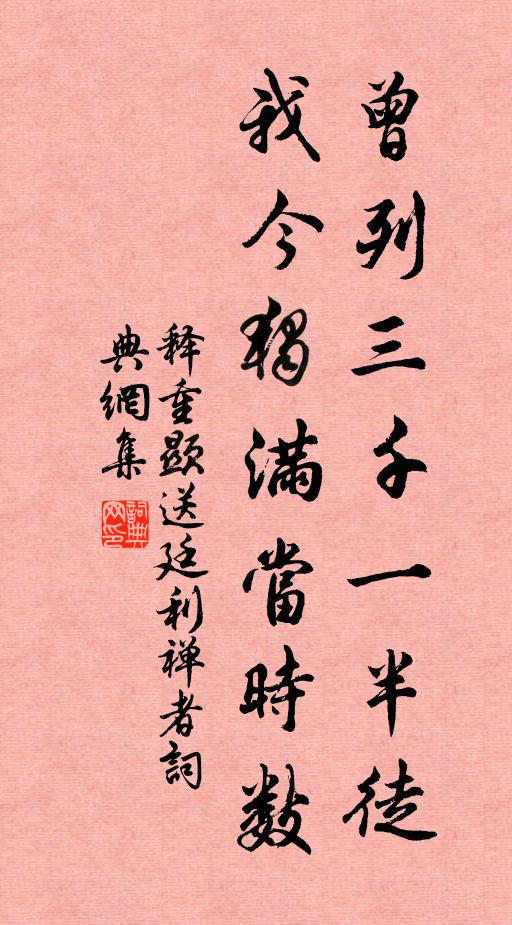 曾列三千一半徒
我今獨满當時數
释重顯送廷利禅者詞
典網集
詞典
网印